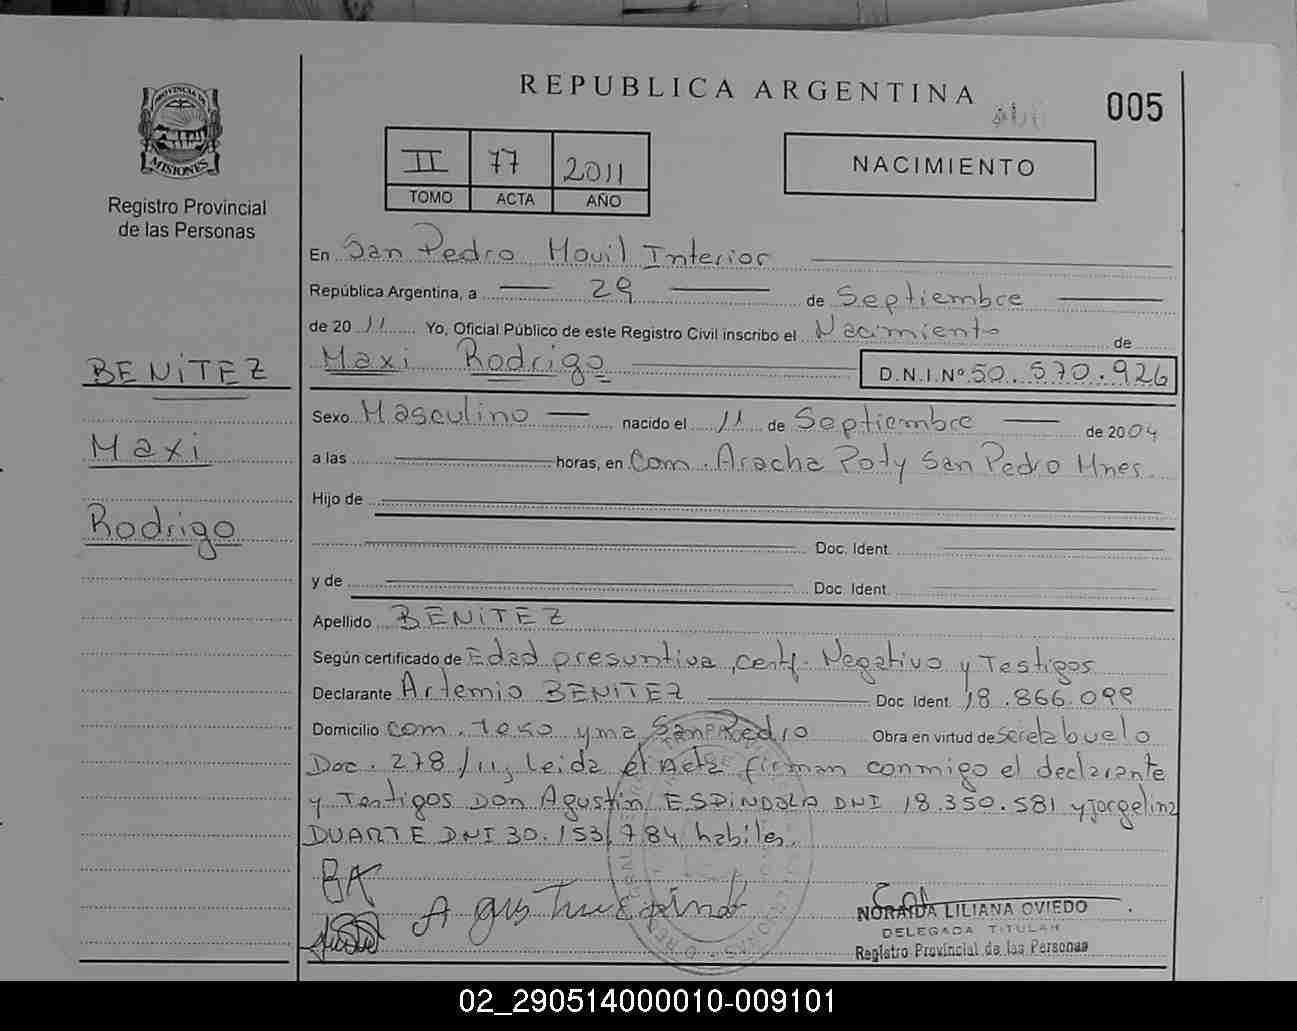 REPUBLICA ARGENTINA
005
PROVINCIA DE
MISIONES
Registro Provincial
de las Personas
II 77 2011
TOMO ACTA AÑO
NACIMIENTO
En San Pedro Movil Interior
República Argentina, a 29 de Septiembre
de 20 11 Yo, Oficial Público de este Registro Civil inscribo el Nacimiento de
Maxi Rodrigo D.N.I.Nº 50.570.926
BENITEZ
Maxi
Rodrigo
Sexo Masculino nacido el 11 de Septiembre de 2004
a las horas, en Com. Aracha Poty San Pedro Mnes.
Hijo de
Doc. Ident.
y de Doc. Ident.
Apellido BENITEZ
Según certificado de Edad presuntiva, certf. Negativo y Testigos
Declarante Artemio BENITEZ Doc. Ident. 18.866.099
Domicilio com. yma San Pedro Obra en virtud de abuelo
Doc. 278/11, Leida el Acta firman conmigo el declarante
y Testigos Don Agustin ESPINDOLA DNI 18.350.581 y Jorgelina
DUARTE DNI 30.153.784 habiles.
BA
Agustin Espindo
NORAIDA LILIANA OVIEDO
DELEGADA TITULAR
Registro Provincial de las Personas
02_290514000010-009101